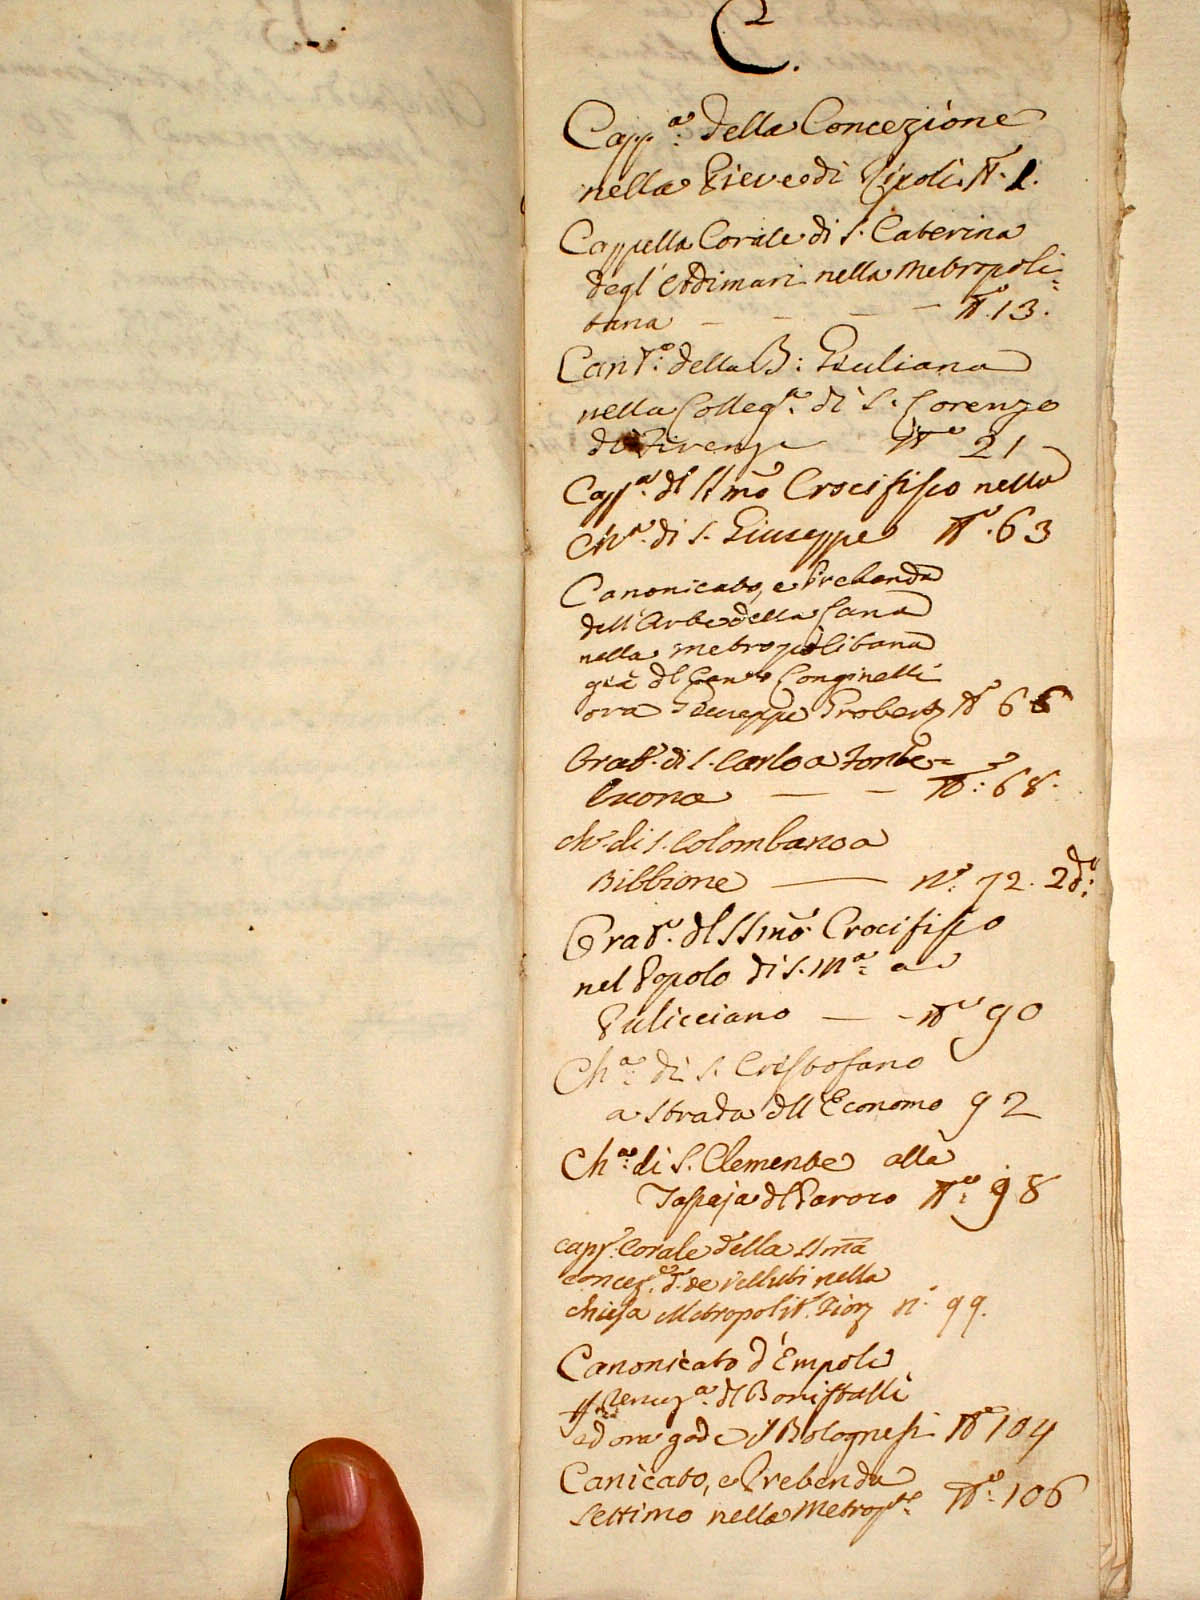 C.
Capp.a della Concezione
nella Pieve di Ripoli N.o 1.
Cappella Corale di S. Caterina
degl' Adimari nella Metropoli=
tana — — — — N.o 13.
Can.to della B: Giuliana
nella Colleg.ta di S. Lorenzo
di Firenze N.o 21
Capp.a dl SSmo Crocifisso nella
Ch.a di S. Giuseppe N.o 63
Canonicato, e Prebenda
dell' Arte della Lana
nella metropolitana
già dl Can.co Longinelli
ora Giuseppe N.o 66
Orat.o di S. Carlo a Fonte=
buona — — N.o: 68.
ch.a di S. Colombano a
Bibbione — N.o: 72. 2do:
Orat.o dl SSmo Crocifisso
nel Popolo di S. M.a a
Pulicciano — — N.o 90
Ch.a di S. Cristofano
a Strada dll' Economo 92
Ch.a: di S. Clemente alla
dl Paroco N.o: 98
capp.a Corale della SSma
concez.e de Velluti nella
chiesa Metropolit.a Fior n.o 99.
Canonicato d'Empoli
p renuz.a dl Bonistalli
ed ora gode il Bolognesi N.o 104
Canicato, e Prebenda
Settimo nella Metrop.na N.o: 106